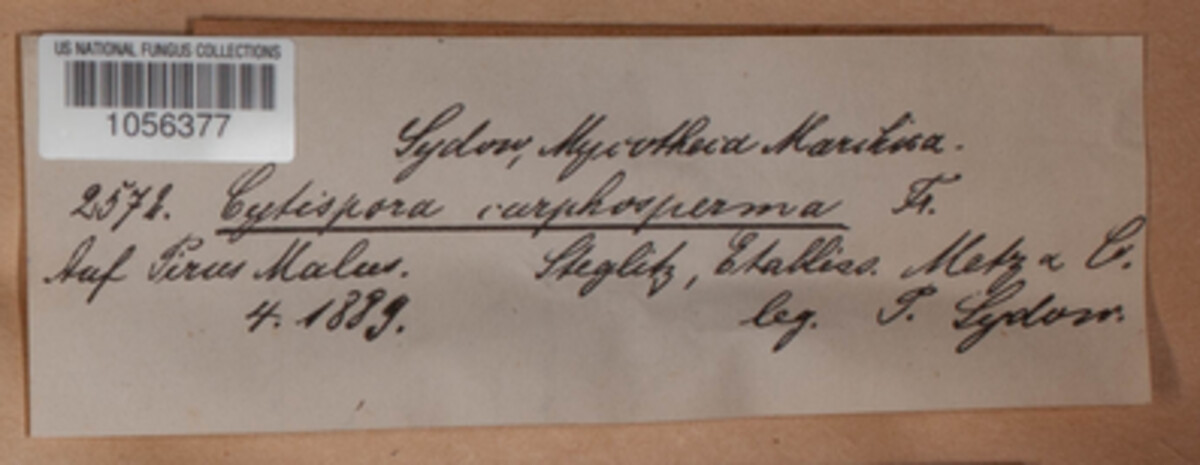 US NATIONAL FUNGUS COLLECTIONS
1056377
Sydow, Mycotheca Marchica.
2572. Cytispora carphosperma Fr.
Auf Pirus Malus. Steglitz, Etabliss. Metz & Co.
4. 1889. leg. P. Sydow.